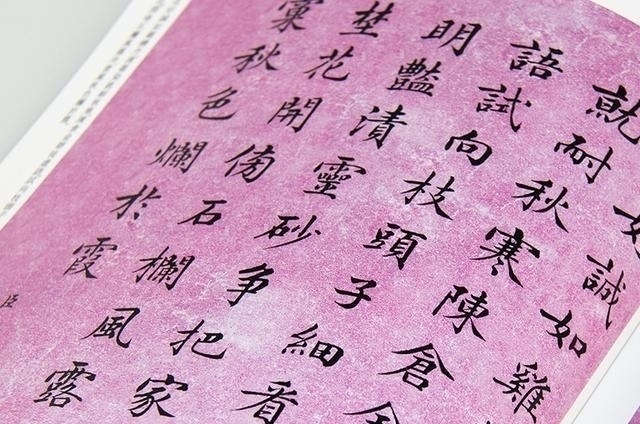 誠如雞
就耐秋寒陳倉
語試向枝頭子細看
明豔漬靈砂争把家
埜花開傍石欄風露
秋色爛於霞
臣